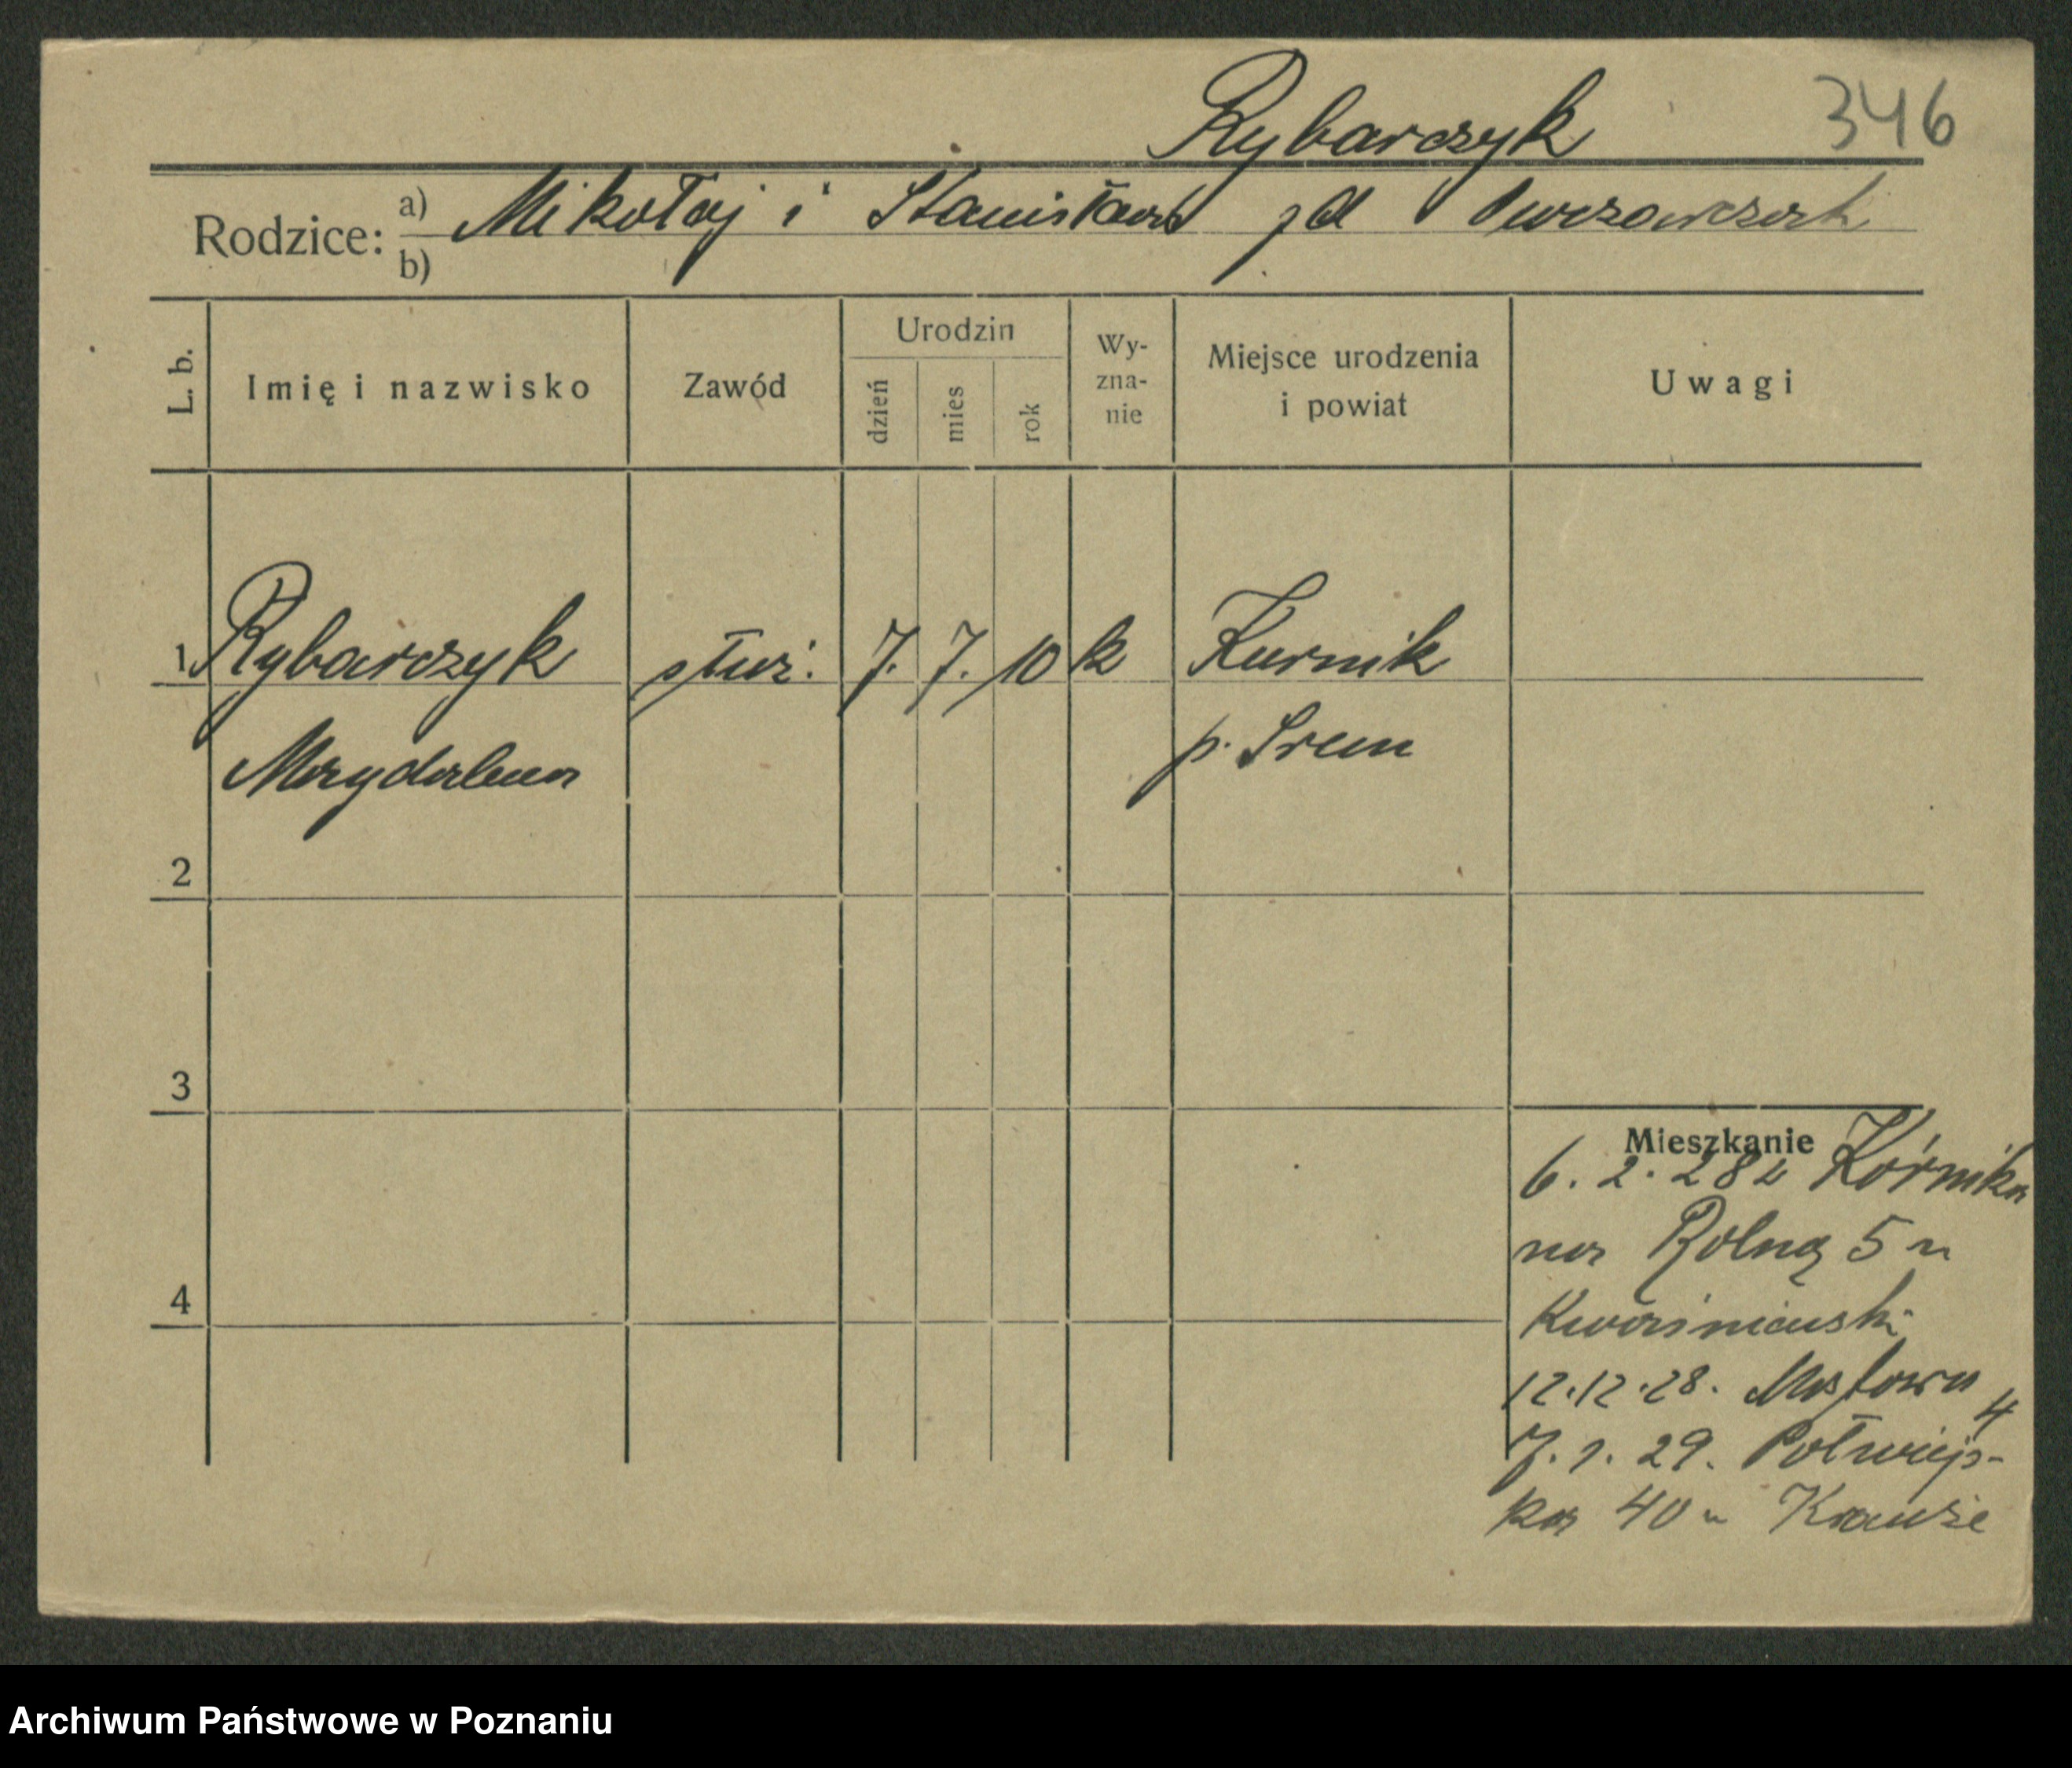 Rybarczyk 346
Rodzice: a) Mikołaj i Stanisława zd
b)
L. b. Imię i nazwisko Zawód Urodzin dzień mies rok Wy-zna-nie Miejsce urodzenia i powiat Uwagi
1 Rybarczyk służ. 7. 7. 10 k Kurnik
Magdalena p. Srem
2
3
4
Mieszkanie
6. 2. 28 z Kórnika
na Rolną 5 u
Kwaśniewski
12.12.28. Mostowa 4
7. 1. 29. Półwiejs-
ka 40 u Krauze
Archiwum Państwowe w Poznaniu